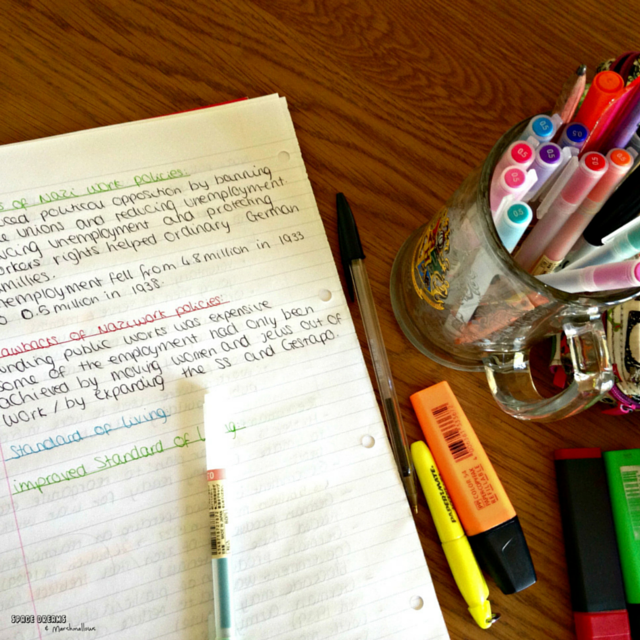 s of Nazi work policies:
political opposition by banning
unions and reducing unemployment
ucing unemployment and protecting
orkers' rights helped ordinary German
milies.
nemployment fell from 4.8 million in 1933
0.5 million in 1938.
awbacks of Nazi work policies:
unding public works was expensive
some of the employment had only been
achieved by moving women and Jews out of
work / by expanding the SS and Gestapo.
Standard of living
improved Standard of
SPACE DREAMS
& Marshmallows